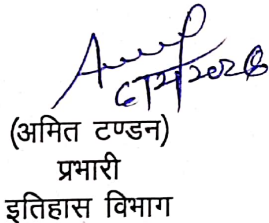 (अमित टण्डन)
प्रभारी
इतिहास विभाग